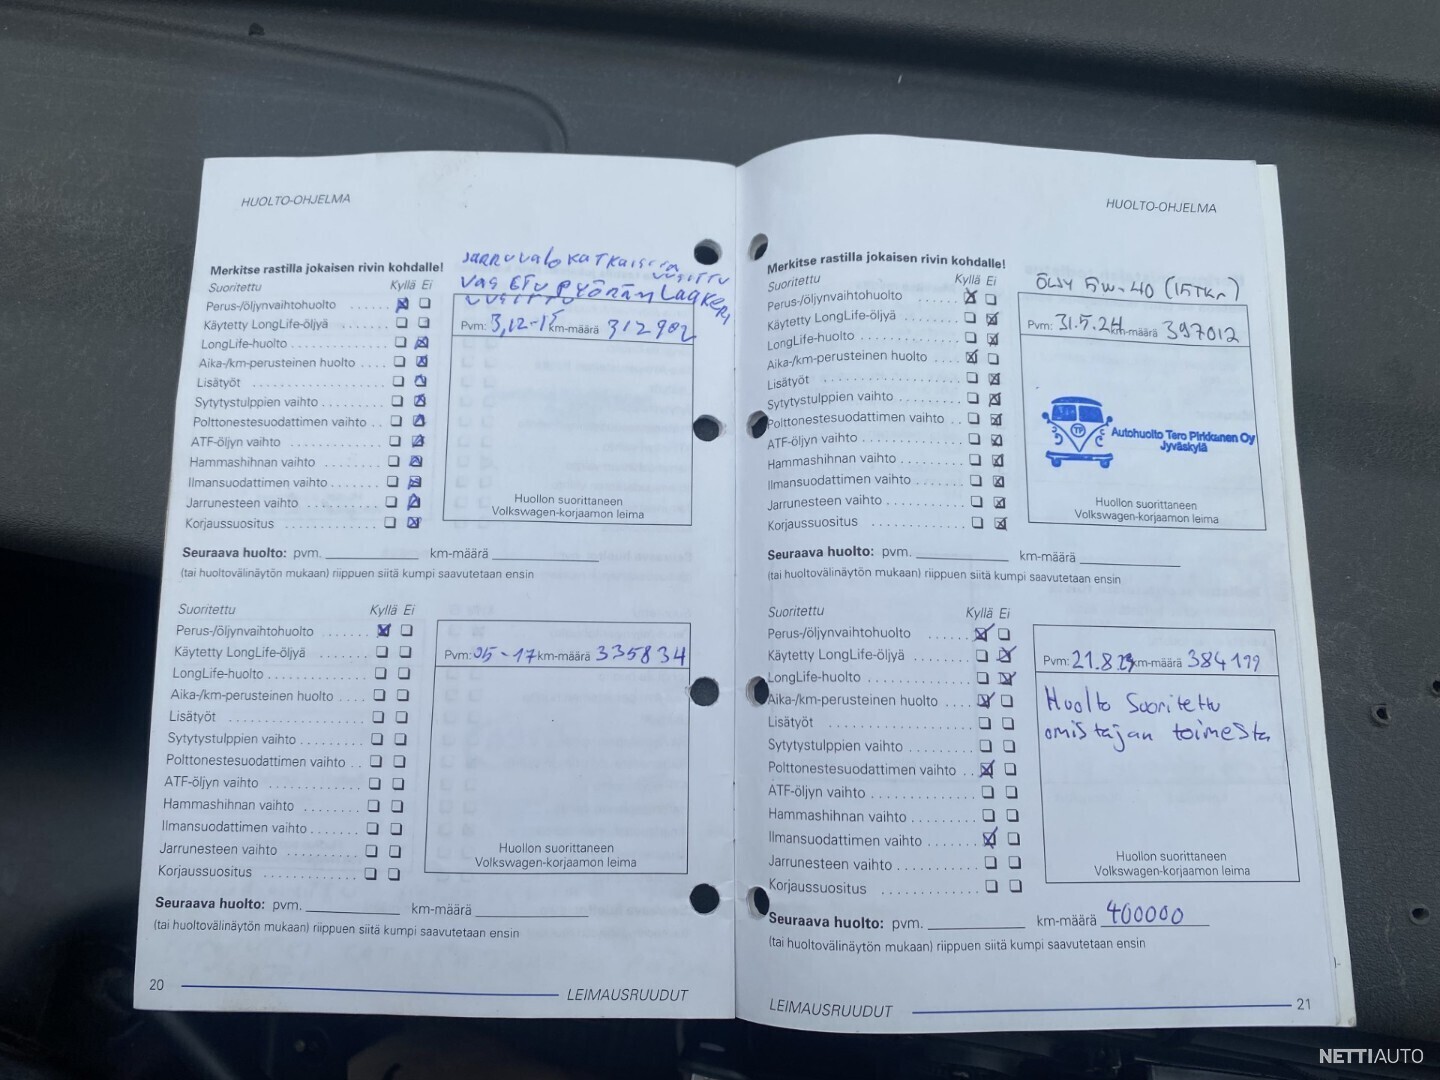 HUOLTO-OHJELMA
Merkitse rastilla jokaisen rivin kohdalle!
Suoritettu Kyllä Ei
Perus-/öljynvaihtohuolto
Käytetty LongLife-öljyä
LongLife-huolto
Aika-/km-perusteinen huolto
Lisätyöt
Sytytystulppien vaihto
Polttonestesuodattimen vaihto
ATF-öljyn vaihto
Hammashihnan vaihto
Ilmansuodattimen vaihto
Jarrunesteen vaihto
Korjaussuositus
JARRUVALO KATKAISIJA
UUSITTU
VAS ETU PYÖRÄN LAAKERI
UUSITTU
Pvm: 3,12-15 km-määrä 312902
Huollon suorittaneen
Volkswagen-korjaamon leima
Seuraava huolto: pvm. km-määrä
(tai huoltovälinäytön mukaan) riippuen siitä kumpi saavutetaan ensin
Suoritettu Kyllä Ei
Perus-/öljynvaihtohuolto
Käytetty LongLife-öljyä
LongLife-huolto
Aika-/km-perusteinen huolto
Lisätyöt
Sytytystulppien vaihto
Polttonestesuodattimen vaihto
ATF-öljyn vaihto
Hammashihnan vaihto
Ilmansuodattimen vaihto
Jarrunesteen vaihto
Korjaussuositus
Pvm: 05-17 km-määrä 335834
Huollon suorittaneen
Volkswagen-korjaamon leima
Seuraava huolto: pvm. km-määrä
(tai huoltovälinäytön mukaan) riippuen siitä kumpi saavutetaan ensin
20 LEIMAUSRUUDUT
HUOLTO-OHJELMA
Merkitse rastilla jokaisen rivin kohdalle!
Suoritettu Kyllä Ei
Perus-/öljynvaihtohuolto
Käytetty LongLife-öljyä
LongLife-huolto
Aika-/km-perusteinen huolto
Lisätyöt
Sytytystulppien vaihto
Polttonestesuodattimen vaihto
ATF-öljyn vaihto
Hammashihnan vaihto
Ilmansuodattimen vaihto
Jarrunesteen vaihto
Korjaussuositus
ÖLJY 5W-40 (15TKM)
Pvm: 31.5.24 km-määrä 397012
TP
Autohuolto Tero Pirkkanen Oy
Jyväskylä
Huollon suorittaneen
Volkswagen-korjaamon leima
Seuraava huolto: pvm. km-määrä
(tai huoltovälinäytön mukaan) riippuen siitä kumpi saavutetaan ensin
Suoritettu Kyllä Ei
Perus-/öljynvaihtohuolto
Käytetty LongLife-öljyä
LongLife-huolto
Aika-/km-perusteinen huolto
Lisätyöt
Sytytystulppien vaihto
Polttonestesuodattimen vaihto
ATF-öljyn vaihto
Hammashihnan vaihto
Ilmansuodattimen vaihto
Jarrunesteen vaihto
Korjaussuositus
Pvm: 21.8.23 km-määrä 384199
Huolto Suoritettu
omistajan toimesta
Huollon suorittaneen
Volkswagen-korjaamon leima
Seuraava huolto: pvm. km-määrä 400000
(tai huoltovälinäytön mukaan) riippuen siitä kumpi saavutetaan ensin
LEIMAUSRUUDUT 21
NETTIAUTO